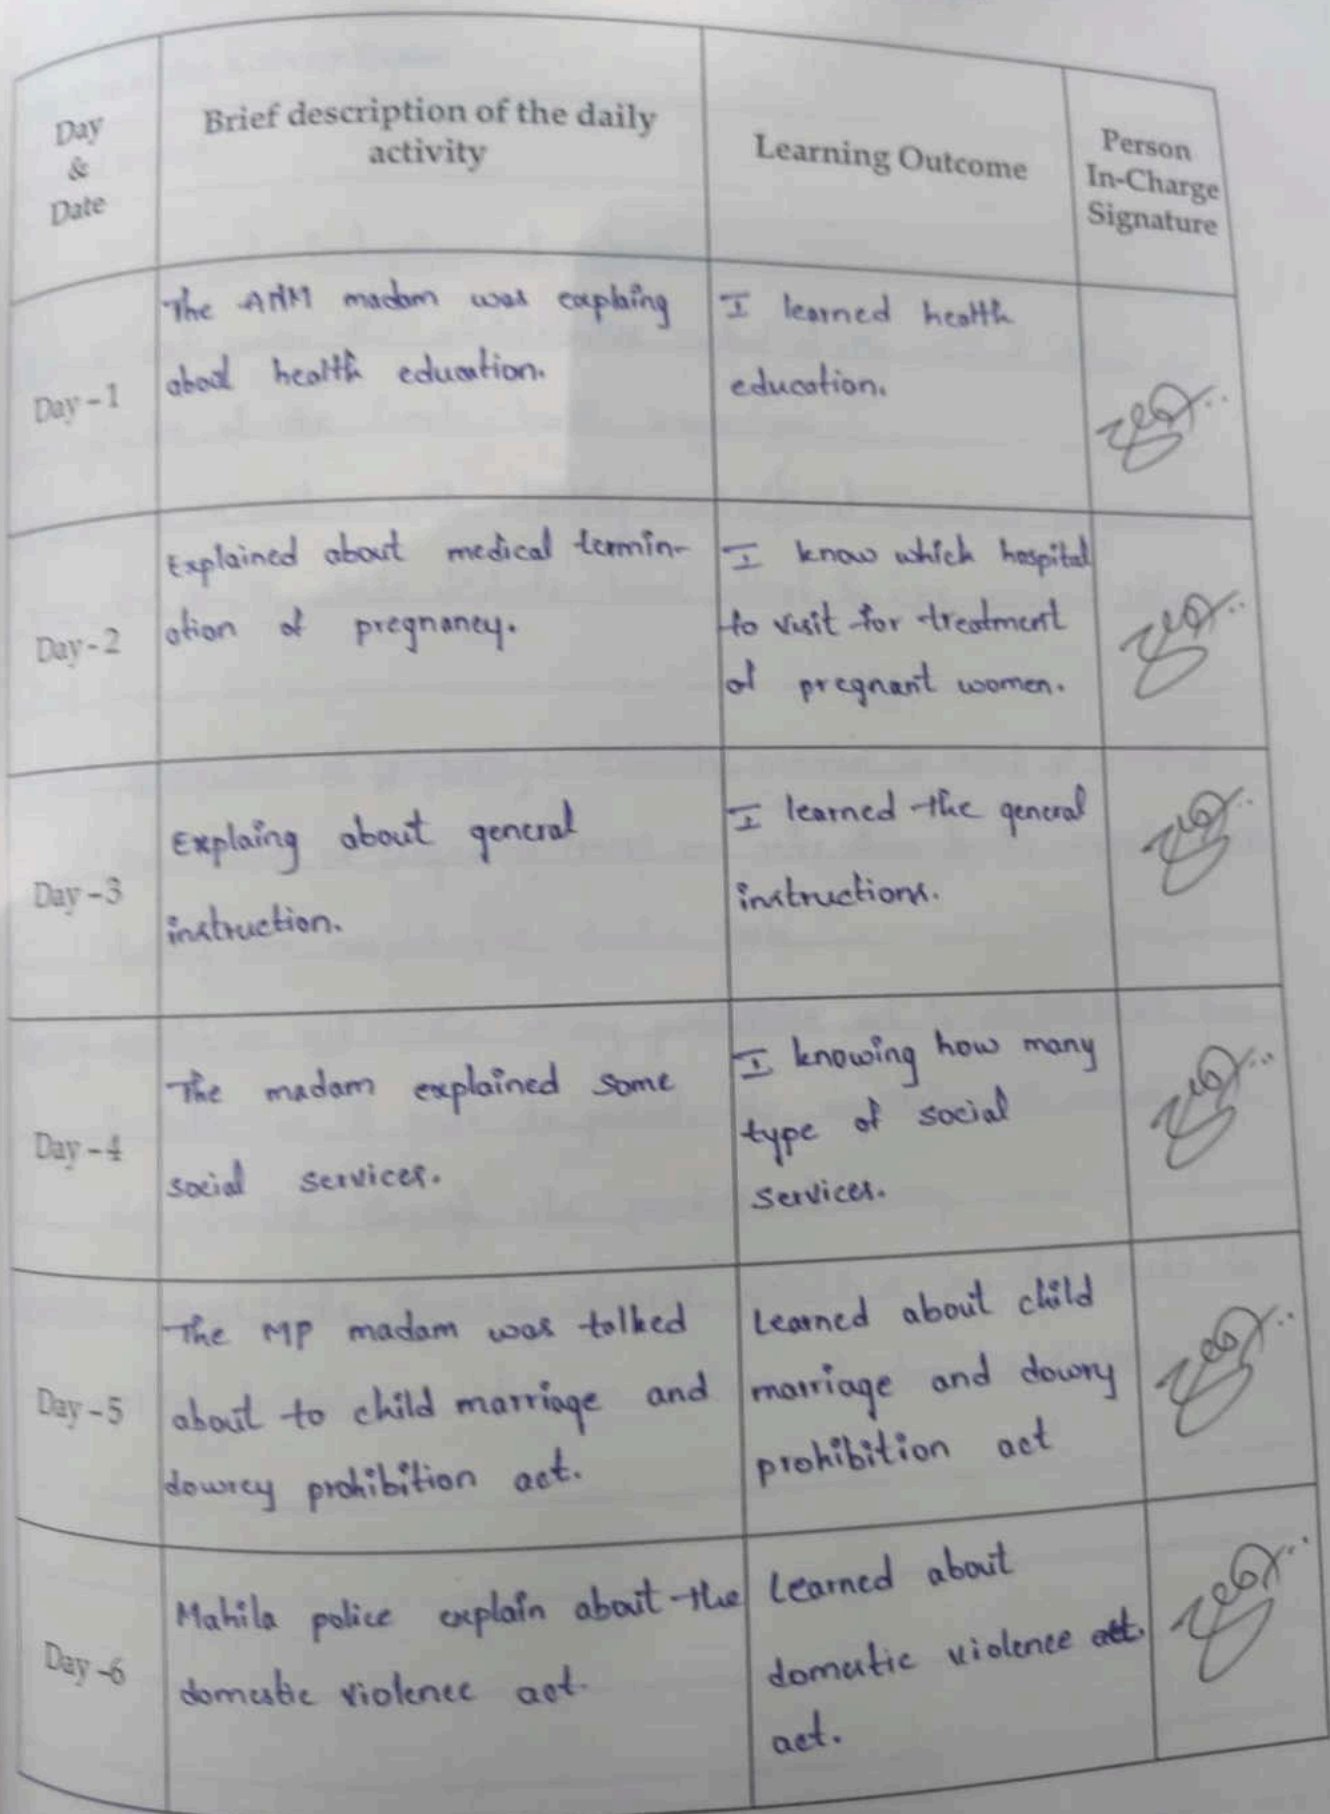 Day
&
Date
Brief description of the daily
activity
Learning Outcome
Person
In-Charge
Signature
Day - 1
The ANM madam was explaing
about health education.
I learned health
education.
Day - 2
Explained about medical termin-
ation of pregnancy.
I know which hospital
to visit for treatment
of pregnant women.
Day - 3
Explaing about general
instruction.
I learned the general
instructions.
Day - 4
The madam explained some
social services.
I knowing how many
type of social
services.
Day - 5
The MP madam was talked
about to child marriage and
dowrey prohibition act.
Learned about child
marriage and dowry
prohibition act
Day - 6
Mahila police explain about the
domestic violence act.
Learned about
domestic violence act.
act.